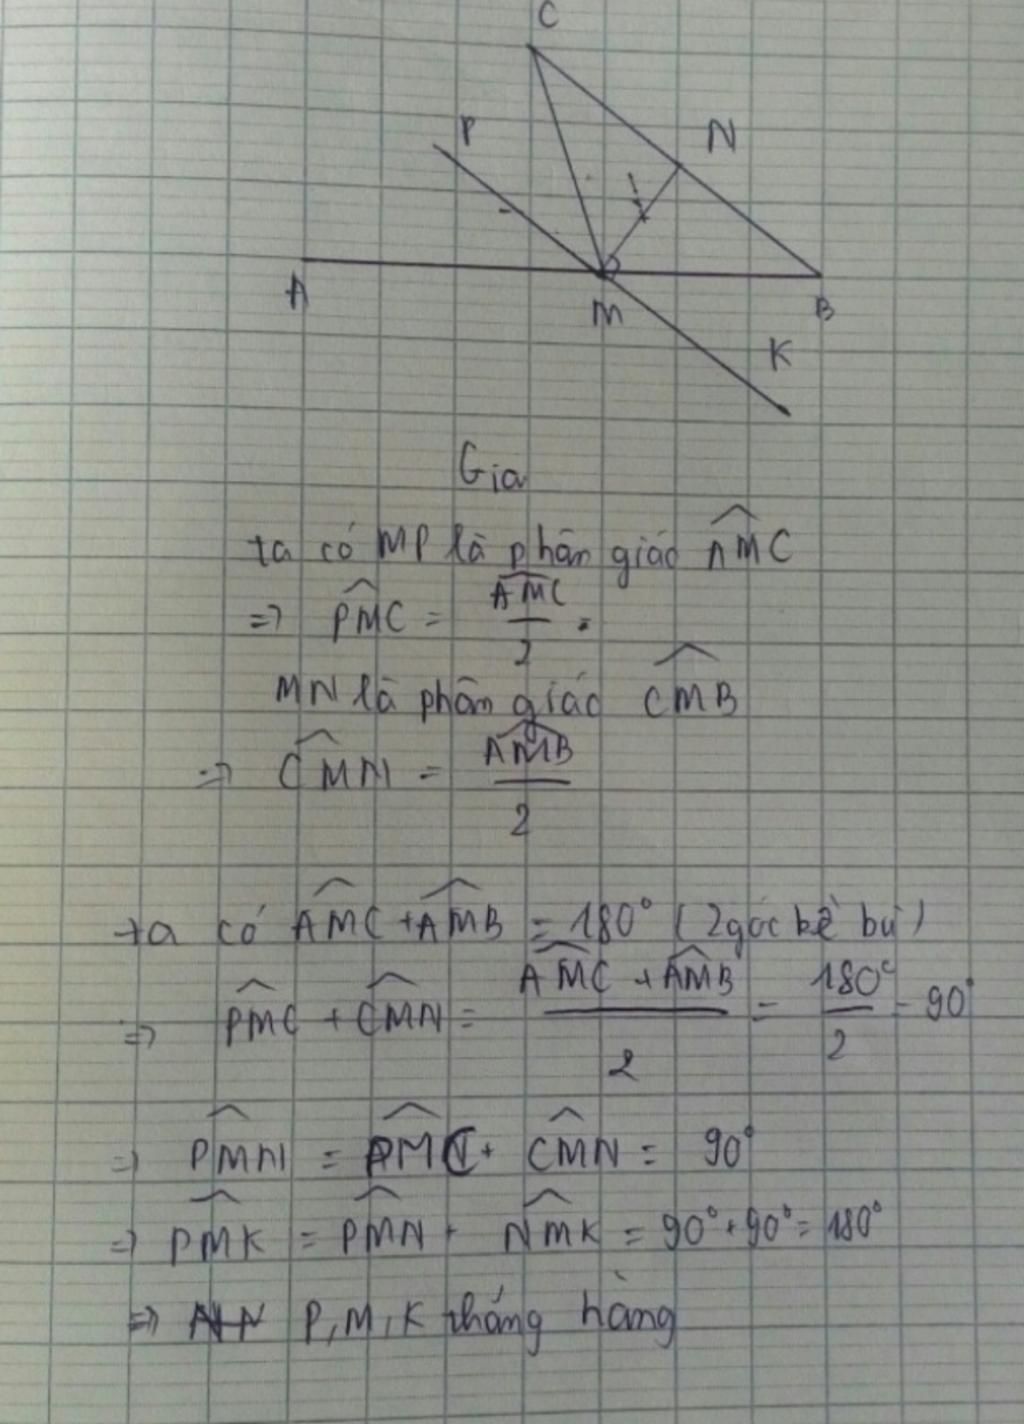 C
P
N
A
M
B
K
Gia
ta có MP là phân giác AMC
=> PMC = AMC / 2 .
MN là phân giác CMB
=> CMN = AMB / 2
ta có AMC + AMB = 180° (2 góc kề bù)
=> PMC + CMN = AMC + AMB / 2 = 180° / 2 = 90°
=> PMN = PMC + CMN = 90°
=> PMK = PMN + NMK = 90° + 90° = 180°
=> P, M, K thẳng hàng